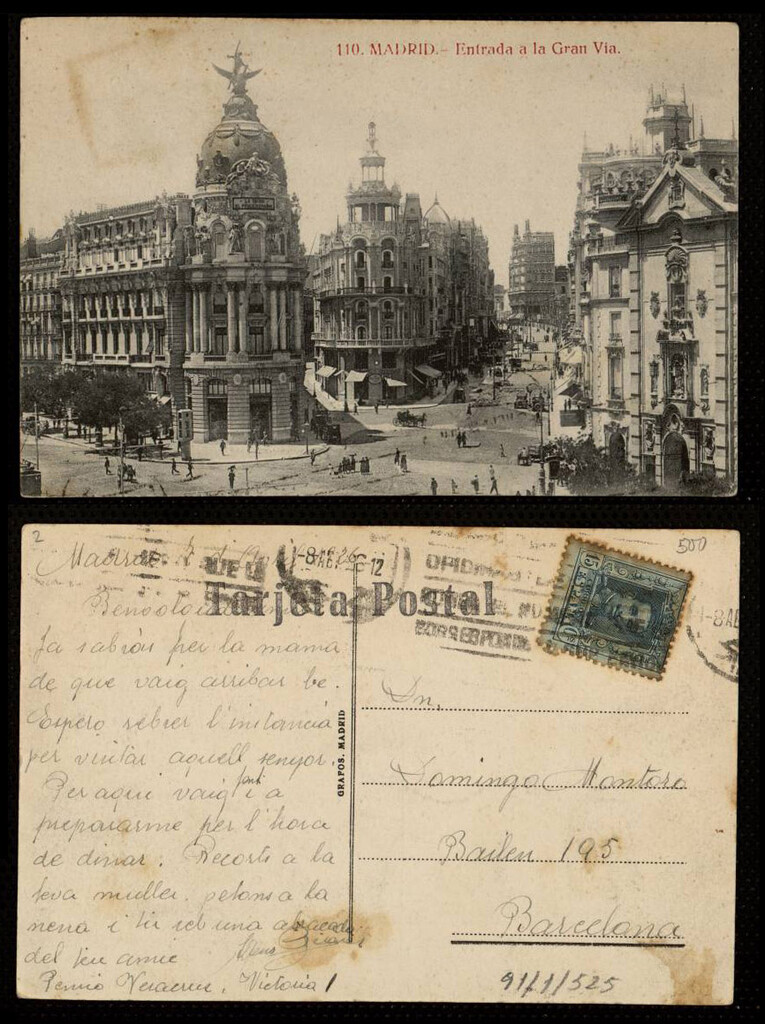 110. MADRID.- Entrada a la Gran Via.
2
500
-8 AB
26
12
Tarjeta Postal
Ja sabràs per la mama
de que vaig arribar be.
Espero rebrer l'instancia
per visitar aquell senyor.
Per aqui vaig fent i a
prepararme per l'hora
de dinar. Recorts a la
teva muller. petons a la
nena i tu reb una abraçada
del teu amic
Veracruz, Victoria 1
GRAFOS. MADRID
15
Dn.
Domingo Montoro
Bailen 195
Barcelona
91/1/525